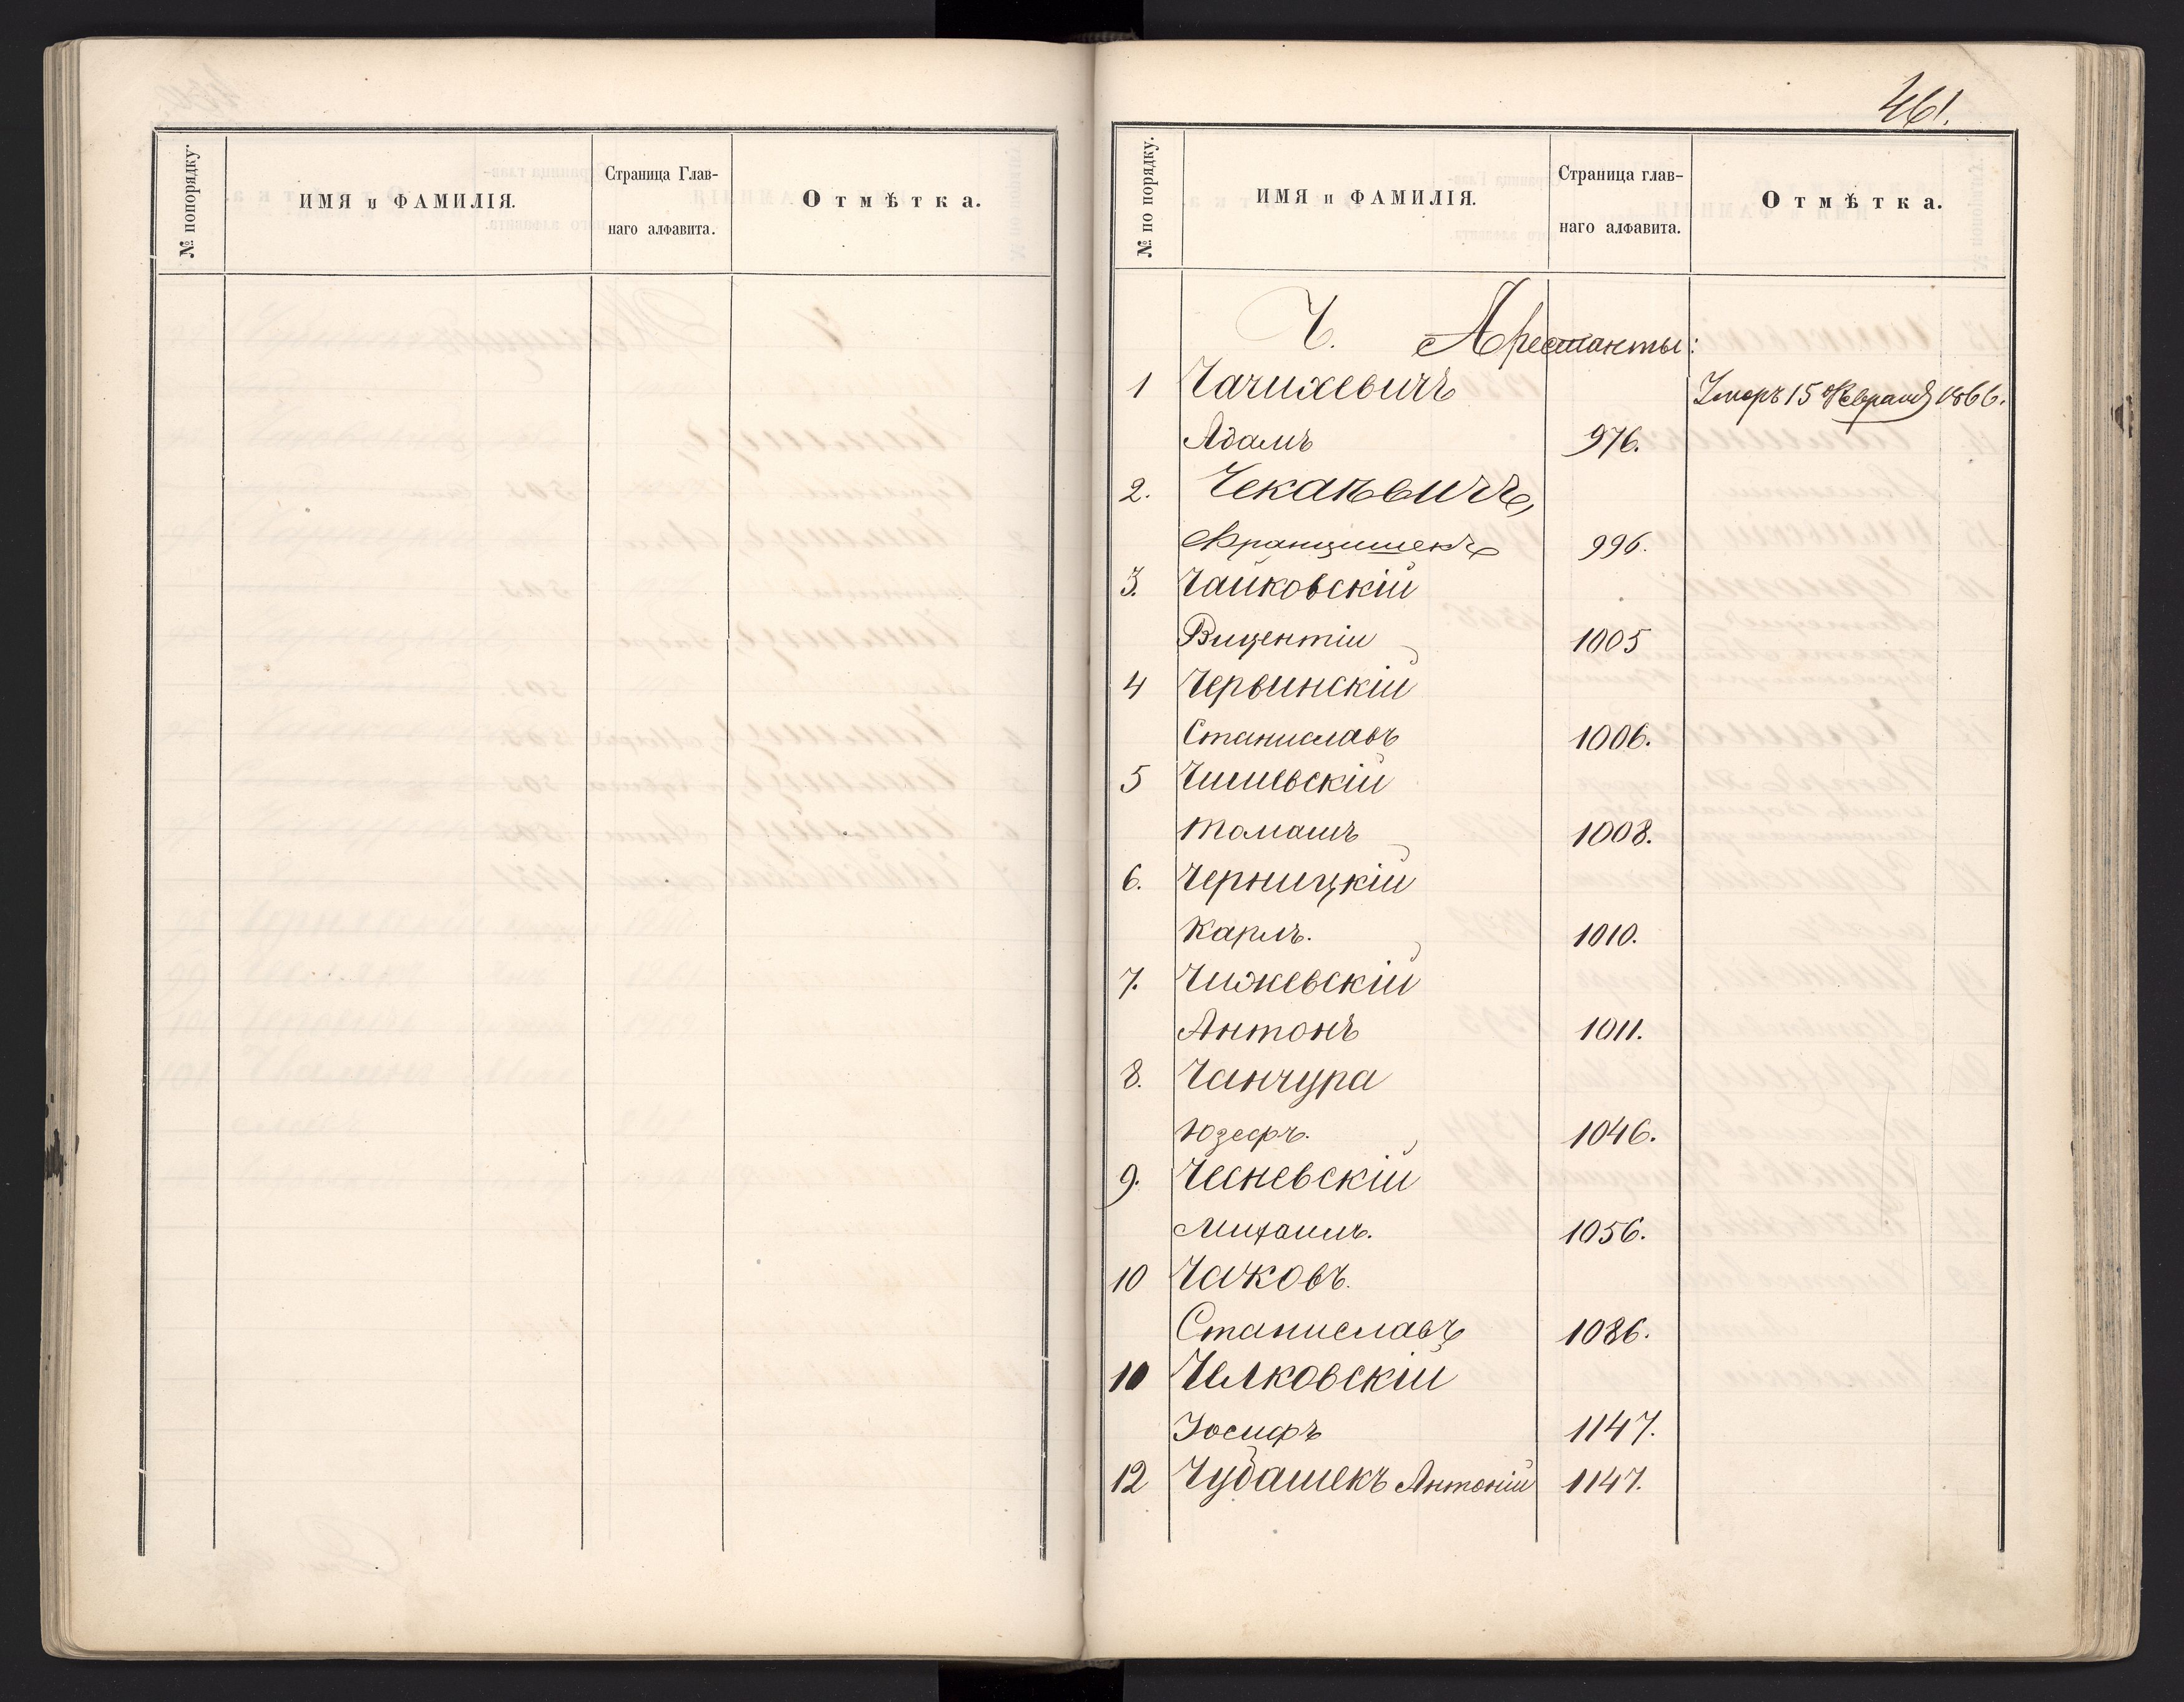 № попорядку.
ИМЯ и ФАМИЛІЯ.
Страница Глав-
наго алфавита.
Отмѣтка.
461.
№ по порядку.
ИМЯ и ФАМИЛІЯ.
Страница глав-
наго алфавита.
Отмѣтка.
Ч. Арестанты:
1 Чачихевичъ Умеръ 15 Февраля 1866.
Адамъ 976.
2. Чекапевичъ,
Францишекъ 996.
3. Чайковскій
Вицентій 1005
4 Червинскій
Станиславъ 1006.
5 Чишевскій
Томашъ 1008.
6. Черницкій
Карлъ. 1010.
7. Чижевскій
Антонъ 1011.
8. Чанчура
Юзефъ. 1046.
9. Чесневскій
Михаилъ. 1056.
10 Чажовъ.
Станиславъ 1086.
10 Челковскій
Іосифъ 1147.
12 Чубашекъ Антоній 1147.